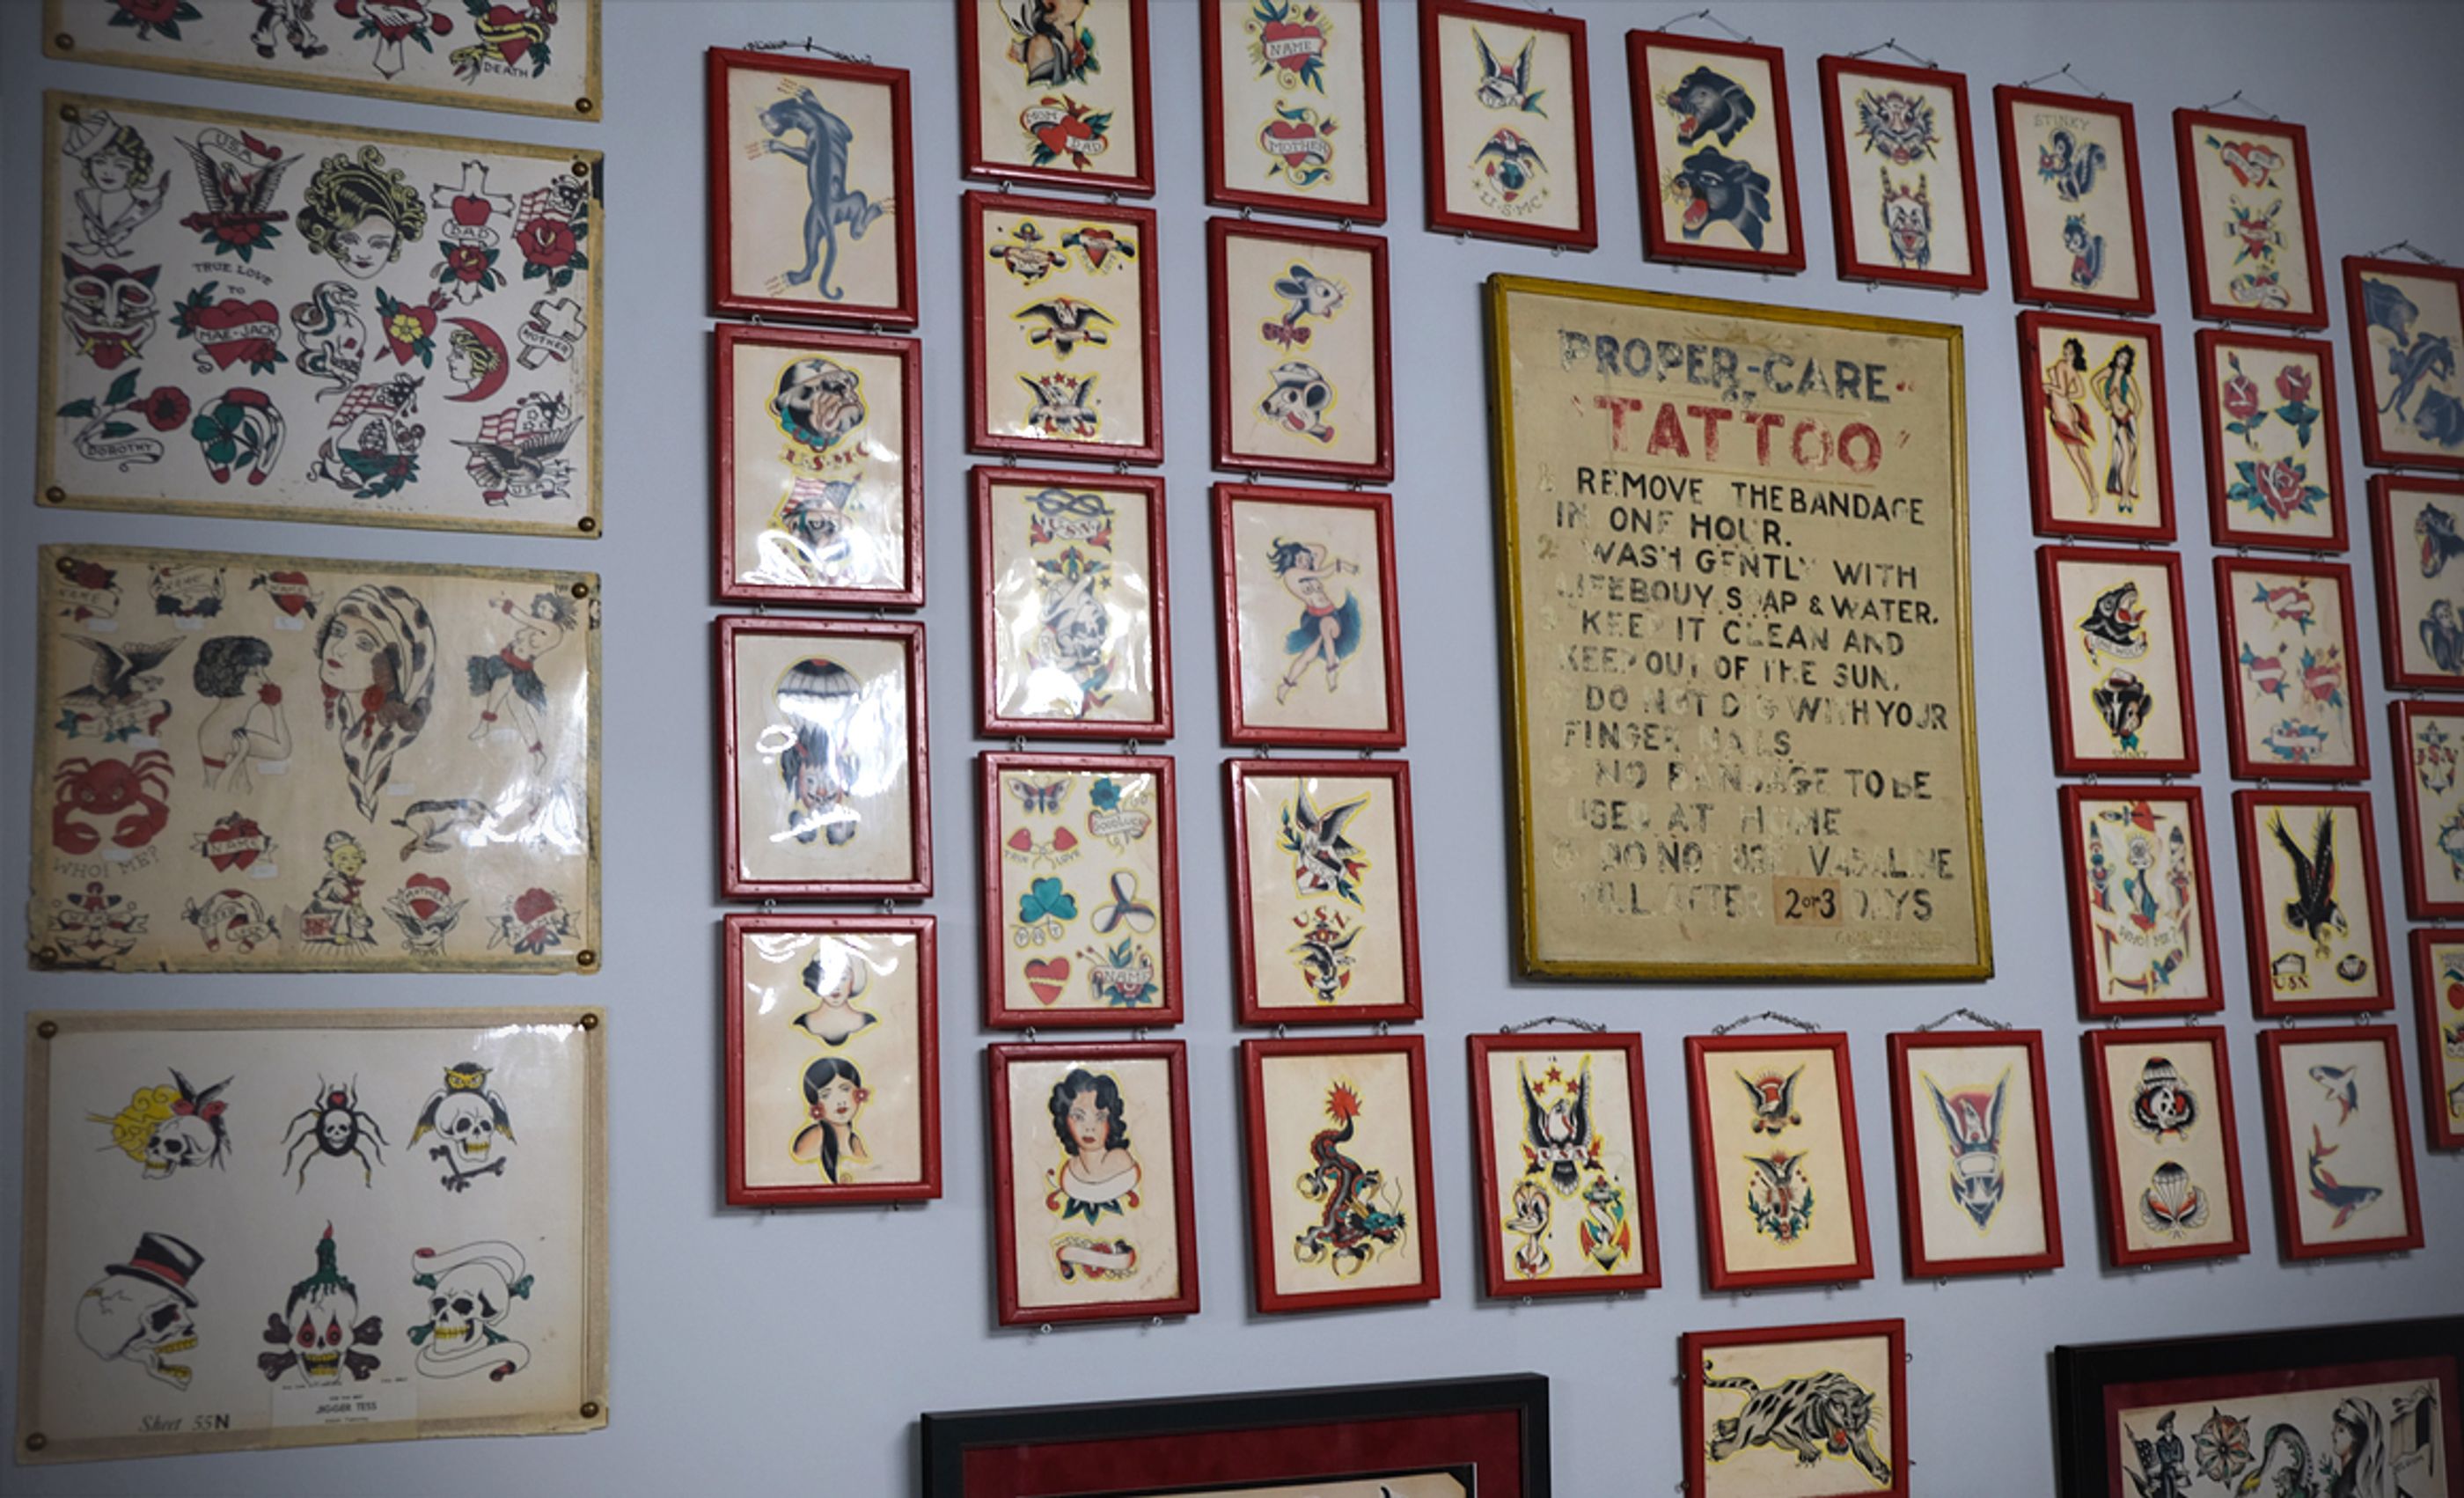 DEATH
USA
DAD
TRUE LOVE
TO
MAE-JACK
MOTHER
DOROTHY
USA
NAME
NAME
WHO! ME?
NAME
MOTHER
JIGGER TESS
Sheet 55N
U.S.M.C
MOM
DAD
U.S.N.
GOOD LUCK
TRUE LOVE
NAME
NAME
MOTHER
U.S.N
USA
U.S.M.C
STINKY
PROPER-CARE
OF
"TATTOO"
REMOVE THE BANDAGE
IN ONE HOUR.
2 WASH GENTLY WITH
LIFEBOUY SOAP & WATER.
KEEP IT CLEAN AND
KEEP OUT OF THE SUN.
DO NOT DIG WITH YOUR
FINGER NAILS.
NO BANDAGE TO BE
USED AT HOME
DO NOT USE VASALINE
TILL AFTER 2 or 3 DAYS
USA
LONE WOLF
WHO! ME?
USN
U.S.N